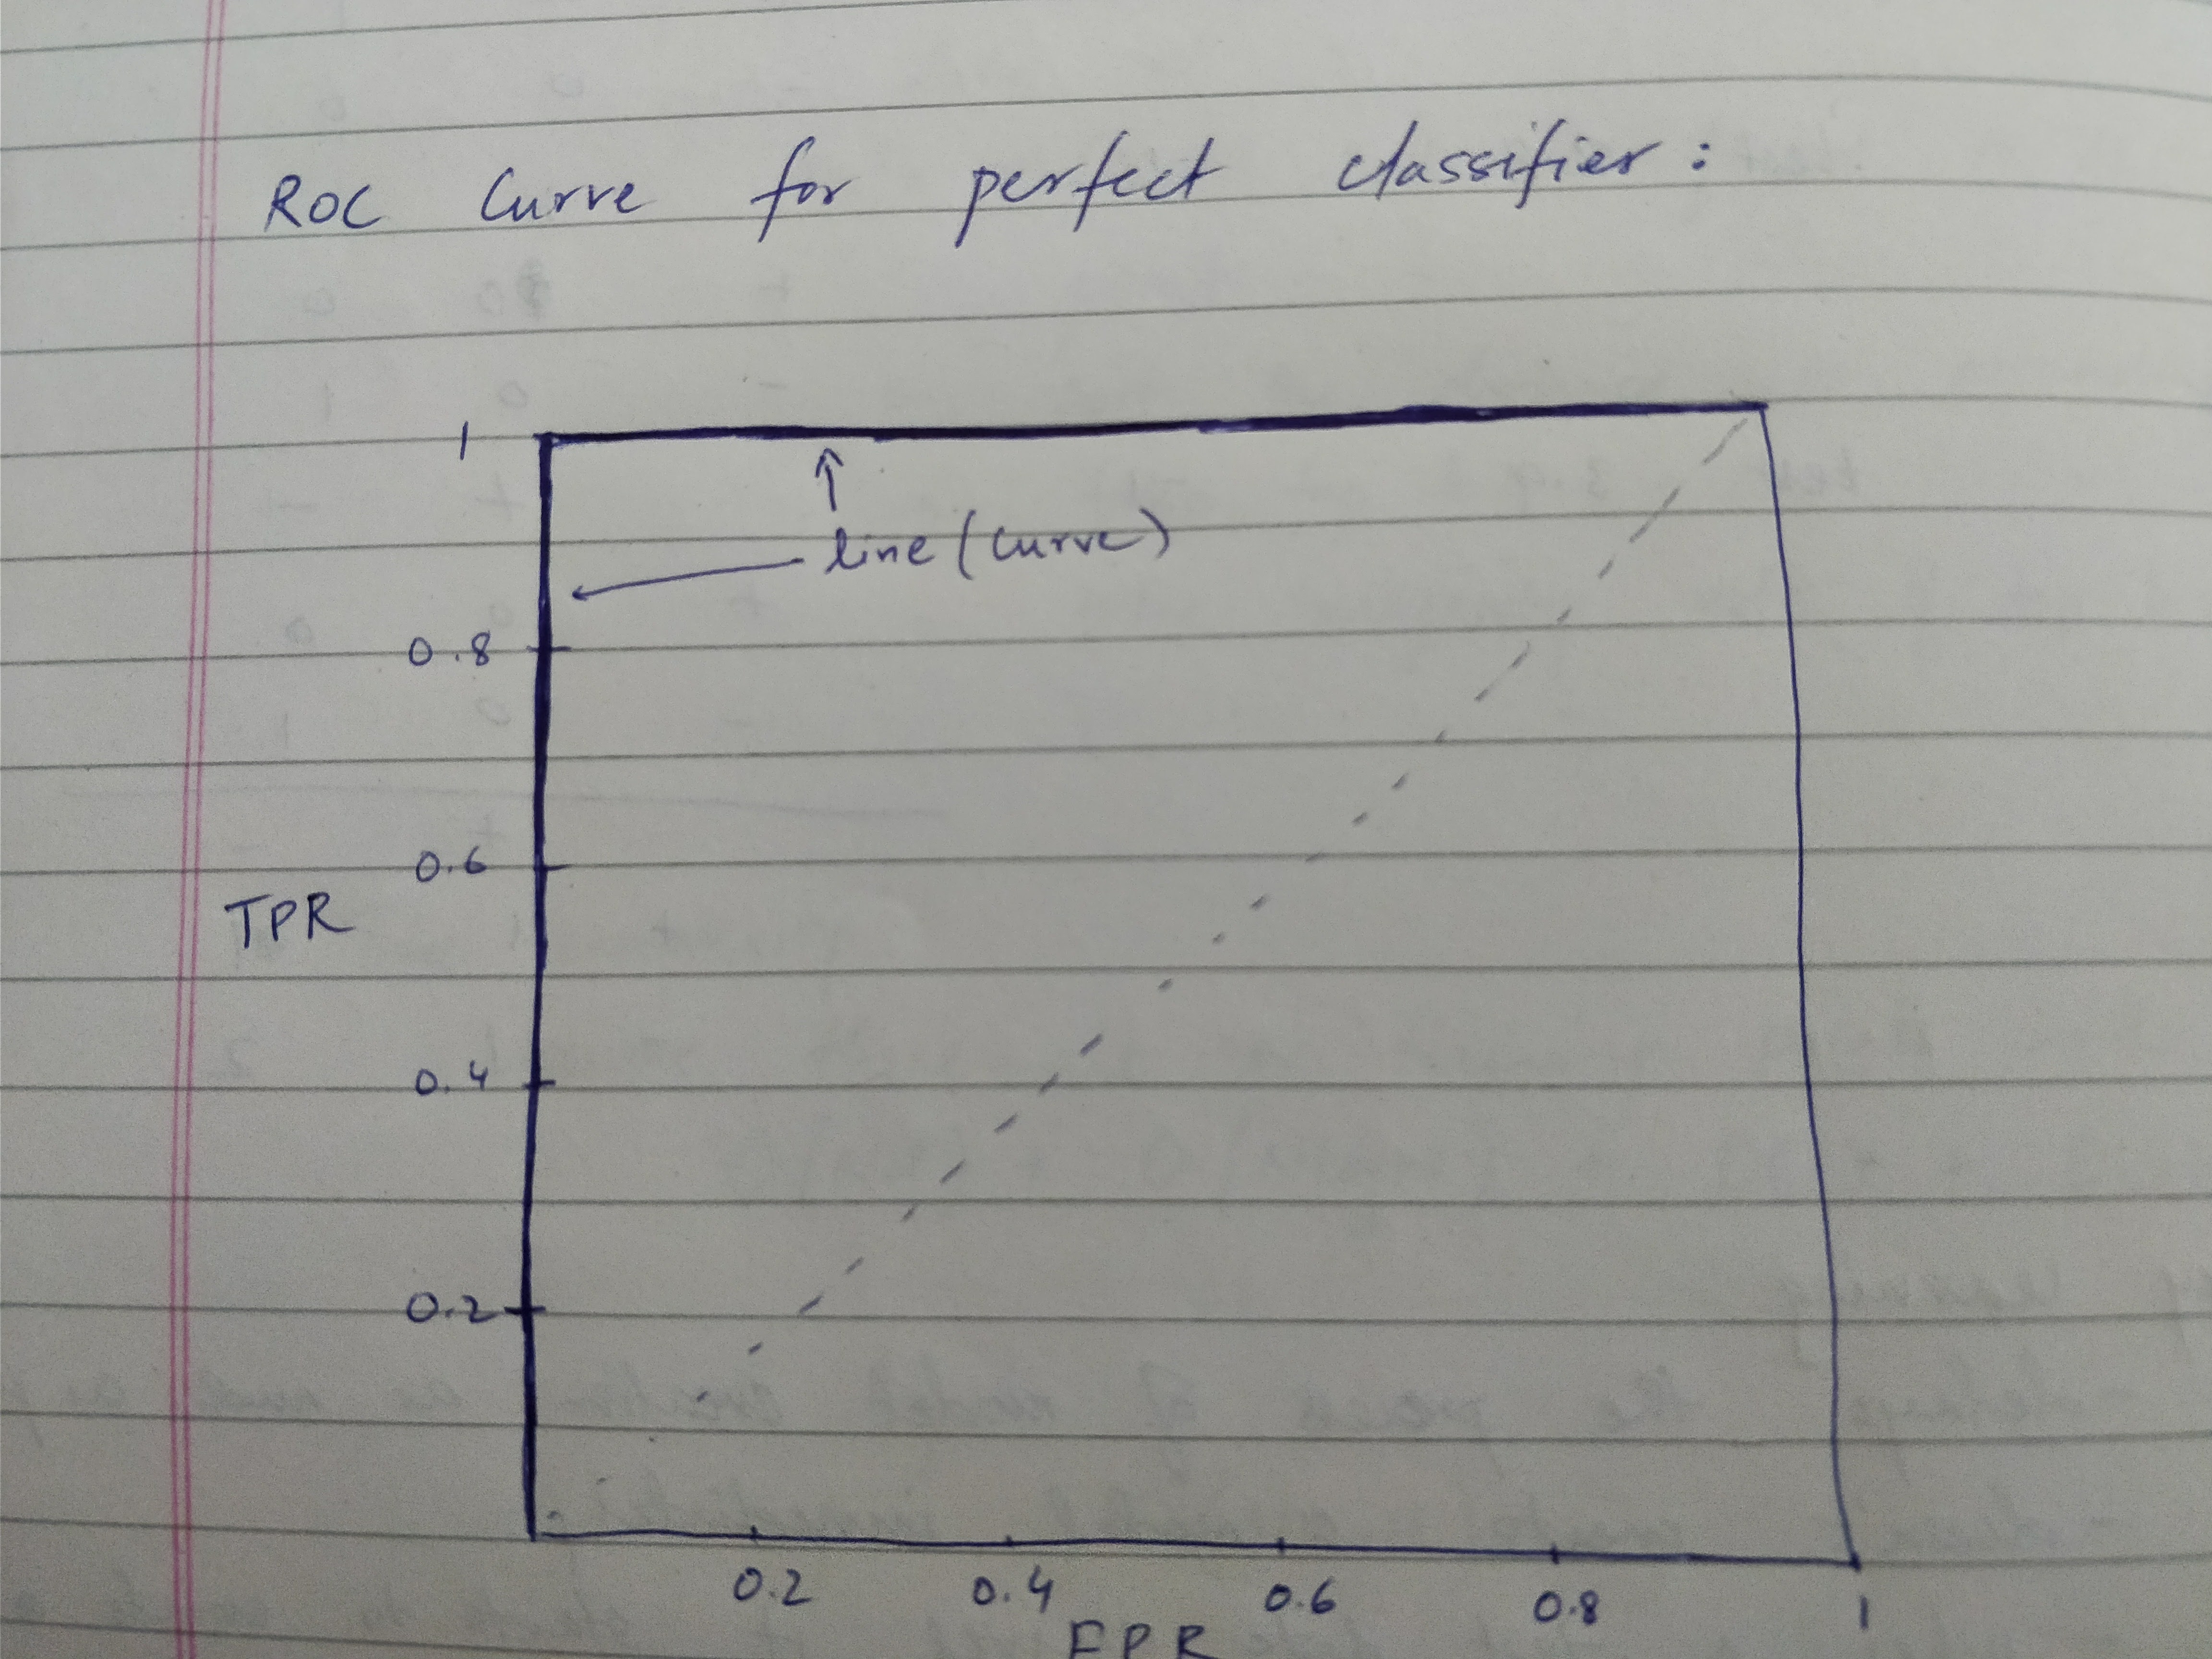 ROC Curve for perfect classifier:
1
line (curve)
0.8
0.6
TPR
0.4
0.2
0.2 0.4 0.6 0.8 1
FPR